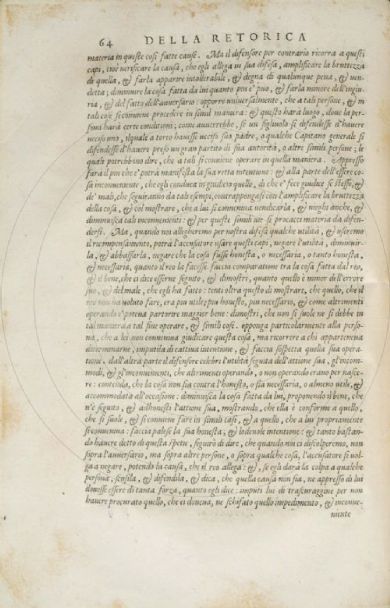 64 DELLA RETORICA
materia in queste così fatte cause. Ma il difensore per contrario ricorra a questi
capi, cioè verificare la causa, che egli allega in sua difesa, amplificare la bruttezza
di quella, & farla apparire intolerabile, & degna di qualunque pena, & ven-
detta; diminuire la cosa fatta da lui quanto può, & farla minore dell'ingiu-
ria, & del fatto dell'avversario: opporre universalmente, che a tali persone, & in
tali cose si conviene procedere in simil maniera: & questo harà luogo, dove la per-
sona harà certe conditioni; come averrebbe, se un figliuolo si difendesse d'havere
ucciso uno, il quale a torto havesse ucciso suo padre, o qualche Capitano generale si
difendesse d'havere preso un gran partito di sua autorità, o altre simili persone; le
quali potrebbono dire, che a tali si conviene operare in quella maniera. Appresso
farà il pro che'è potrà manifesta la sua retta intentione: & alla parte dell'essere co-
sa inconveniente, che egli conduca in giuditio quello, di che e' fece giudice se stesso, &
de' mali, che seguitano da tale esempi, contrapponga con l'amplificare la bruttezza
della cosa, & col mostrare, che a lui si convenia vendicarla, & meglio anche, &
diminuisca tali inconvenienti: & per queste simili vie si procacci materia da difen-
dersi. Ma, quando noi allegheremo per nostra difesa qualche utilità, & useremo
il ricompensamento, potrà l'accusatore usare questi capi, negare l'utilità, diminuir-
la, & abbassarla, negare che la cosa fusse honesta, o necessaria, o tanto honesta,
& necessaria, quanto il reo la facesse. faccia comparatione tra la cosa fatta dal reo,
& il bene, che ei dice esserne seguito, & dimostri, quanto quello è minor dell'erro-
re, & del male, che egli ha fatto: tenti oltra questo di mostrare, che quello, che il
reo non ha voluto fare, era più utile, più honesto, più necessario, & come altrimenti
operando e' poteva partorire maggior bene: dimostri, che non si suole ne si debbe in
tal maniera a tal fine operare, & simili cose. opponga particolarmente alla perso-
na, che a lui non conveniva giudicare questa cosa, ma ricorrere a chi appartenea
determinarne, imputila di cattiva intentione, & faccia sospetta quella sua opera-
tione. dall'altra parte il difensore celebri l'utilità seguita dell'attione sua, gl'incom-
modi, & gl'inconvenienti, che altrimenti operando, o non operando erano per nasce-
re: contenda, che la cosa non sia contra l'honesto, o sia necessaria, o almeno utile, &
accommodata all'occasione: diminuisca la cosa fatta da lui, proponendo il bene, che
n'è seguito, & adhonesti l'attione sua, mostrando, che ella è conforme a quello,
che si suole, & si conviene fare in simili casi, & a quello, che a lui propriamente
si conveniva: faccia palese la sua honesta, & lodevole intentione: & tanto bastan-
do havere detto di questa spetie, seguirò di dire, che quando non ci discolperemo, non
sopra l'avversario, ma sopra altre persone, o sopra qualche cosa, l'accusatore si vol-
ga a negare, potendo la causa, che il reo allega: &, se egli darà la colpa a qualche
persona; scusila, & difendila, & dica, che quella causa non sia, ne appresso di lui
dovesse essere di tanta forza, quanto egli dice: imputi lui di trascuraggine per non
havere procurato quello, che ei doveva, ne schifato quello impedimento, & inconve-
niente